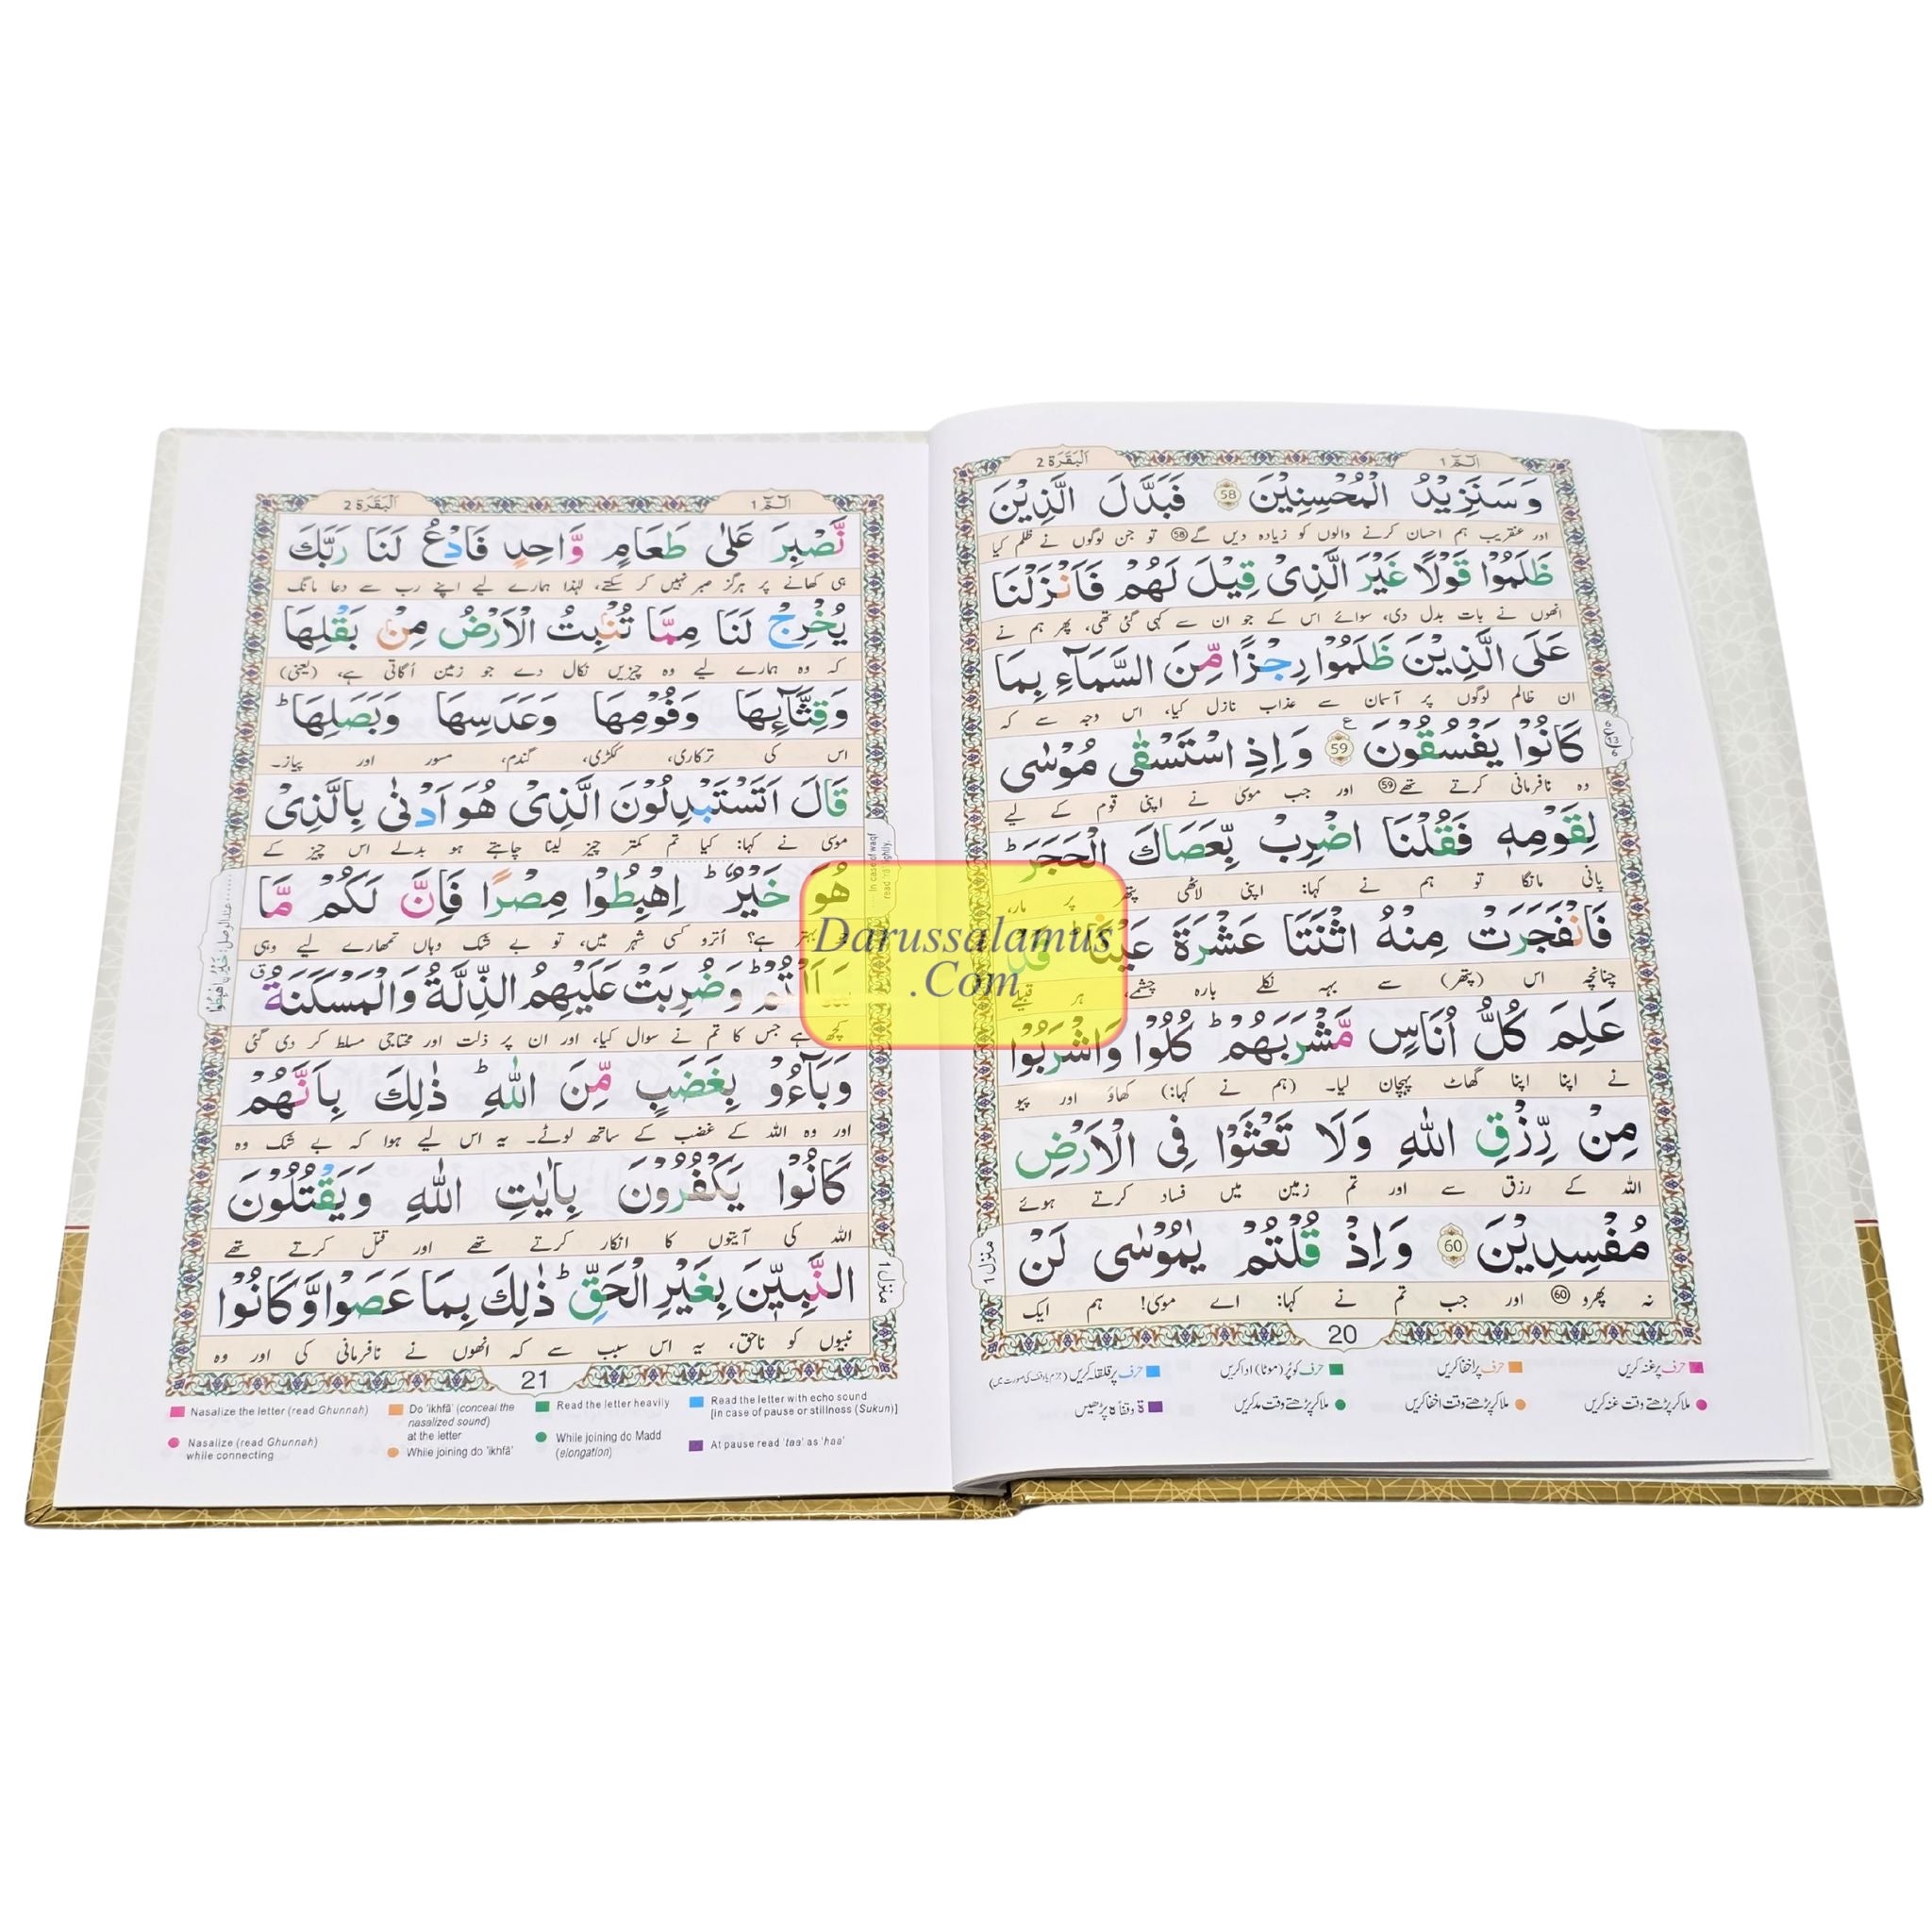 اَلْبَقَرَة 2
الٓمّٓ 1
وَ سَنَزِيْدُ الْمُحْسِنِيْنَ 58 فَبَدَّلَ الَّذِيْنَ
اور عنقریب ہم احسان کرنے والوں کو زیادہ دیں گے 58 تو جن لوگوں نے ظلم کیا
ظَلَمُوْا قَوْلًا غَيْرَ الَّذِيْ قِيْلَ لَهُمْ فَاَنْزَلْنَا
انھوں نے بات بدل دی، سوائے اس کے جو ان سے کہی گئی تھی، پھر ہم نے
عَلَى الَّذِيْنَ ظَلَمُوْا رِجْزًا مِّنَ السَّمَآءِ بِمَا
ان ظالم لوگوں پر آسمان سے عذاب نازل کیا، اس وجہ سے کہ
كَانُوْا يَفْسُقُوْنَ 59 ع وَ اِذِ اسْتَسْقٰى مُوْسٰى
وہ نافرمانی کرتے تھے 59 اور جب موسیٰ نے اپنی قوم کے لیے
لِقَوْمِهٖ فَقُلْنَا اضْرِبْ بِّعَصَاكَ الْحَجَرَ ط
پانی مانگا تو ہم نے کہا: اپنی لاٹھی پتھر پر مار،
فَانْفَجَرَتْ مِنْهُ اثْنَتَا عَشْرَةَ عَيْنًا قَدْ
چنانچہ اس (پتھر) سے بہہ نکلے بارہ چشمے، ہر قبیلے
عَلِمَ كُلُّ اُنَاسٍ مَّشْرَبَهُمْ ط كُلُوْا وَاشْرَبُوْا
نے اپنا اپنا گھاٹ پہچان لیا۔ (ہم نے کہا:) کھاؤ اور پیو
مِنْ رِّزْقِ اللّٰهِ وَلَا تَعْثَوْا فِى الْاَرْضِ
اللہ کے رزق سے اور تم زمین میں فساد کرتے ہوئے
مُفْسِدِيْنَ 60 وَ اِذْ قُلْتُمْ يٰمُوْسٰى لَنْ
نہ پھرو 60 اور جب تم نے کہا: اے موسیٰ! ہم ایک
منزل 1
20
حرف پر غنہ کریں
حرف پر اخفا کریں
حرف کو پُر (موٹا) ادا کریں
حرف پر قلقلہ کریں (جزم یا وقف کی صورت میں)
ملا کر پڑھتے وقت غنہ کریں
ملا کر پڑھتے وقت اخفا کریں
ملا کر پڑھتے وقت مد کریں
ة وقفاً ه پڑھیں
اَلْبَقَرَة 2
الٓمّٓ 1
نَّصْبِرَ عَلٰى طَعَامٍ وَّاحِدٍ فَادْعُ لَنَا رَبَّكَ
ہی کھانے پر ہرگز صبر نہیں کر سکتے، لہٰذا ہمارے لیے اپنے رب سے دعا مانگ
يُخْرِجْ لَنَا مِمَّا تُنْبِتُ الْاَرْضُ مِنْ بَقْلِهَا
کہ وہ ہمارے لیے وہ چیزیں نکال دے جو زمین اُگاتی ہے، (یعنی)
وَقِثَّآئِهَا وَفُوْمِهَا وَعَدَسِهَا وَبَصَلِهَا ط
اس کی ترکاری، ککڑی، گندم، مسور اور پیاز۔
قَالَ اَتَسْتَبْدِلُوْنَ الَّذِيْ هُوَ اَدْنٰى بِالَّذِيْ
موسیٰ نے کہا: کیا تم کمتر چیز لینا چاہتے ہو بدلے اس چیز کے
هُوَ خَيْرٌ ط اِهْبِطُوْا مِصْرًا فَاِنَّ لَكُمْ مَّا
بہتر ہے؟ اُترو کسی شہر میں، تو بے شک وہاں تمھارے لیے وہی
سَاَلْتُمْ ط وَ ضُرِبَتْ عَلَيْهِمُ الذِّلَّةُ وَالْمَسْكَنَةُ ق
کچھ ہے جس کا تم نے سوال کیا، اور ان پر ذلت اور محتاجی مسلط کر دی گئی
وَبَآءُوْ بِغَضَبٍ مِّنَ اللّٰهِ ط ذٰلِكَ بِاَنَّهُمْ
اور وہ اللہ کے غضب کے ساتھ لوٹے۔ یہ اس لیے ہوا کہ بے شک وہ
كَانُوْا يَكْفُرُوْنَ بِاٰيٰتِ اللّٰهِ وَيَقْتُلُوْنَ
اللہ کی آیتوں کا انکار کرتے تھے اور قتل کرتے تھے
النَّبِيّٖنَ بِغَيْرِ الْحَقِّ ط ذٰلِكَ بِمَا عَصَوْا وَّكَانُوْا
نبیوں کو ناحق، یہ اس سبب سے کہ انھوں نے نافرمانی کی اور وہ
منزل 1
In case of waqf
21
Nasalize the letter (read Ghunnah)
Do 'ikhfā' (conceal the nasalized sound) at the letter
Read the letter heavily
Read the letter with echo sound [in case of pause or stillness (Sukun)]
Nasalize (read Ghunnah) while connecting
While joining do 'ikhfā'
While joining do Madd (elongation)
At pause read 'taa' as 'haa'
Darussalamus
.Com